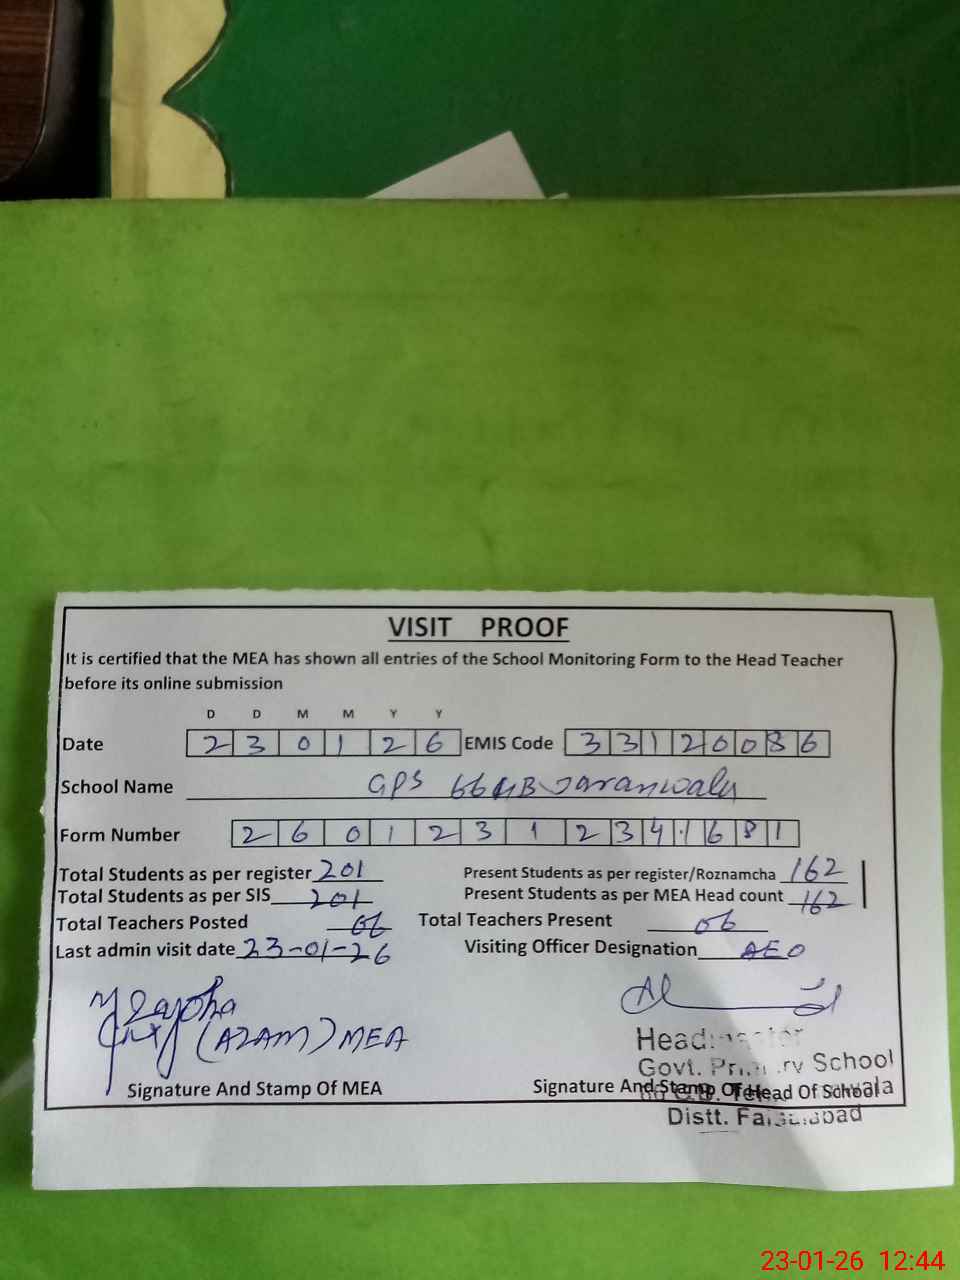 VISIT PROOF
It is certified that the MEA has shown all entries of the School Monitoring Form to the Head Teacher
before its online submission
D D M M Y Y
Date 2 3 0 1 2 6 EMIS Code 3 3 1 2 0 0 8 6
School Name GPS 66 GB Jaranwala
Form Number 2 6 0 1 2 3 1 2 3 4 1 6 8 1
Total Students as per register 201 Present Students as per register/Roznamcha 162
Total Students as per SIS 201 Present Students as per MEA Head count 162
Total Teachers Posted 06 Total Teachers Present 06
Last admin visit date 23-01-26 Visiting Officer Designation AEO
(AZAM) MEA
Headmaster
Govt. Primary School
Signature And Stamp Of MEA Signature And Stamp Of Head Of School
Distt. Faisalabad
23-01-26 12:44